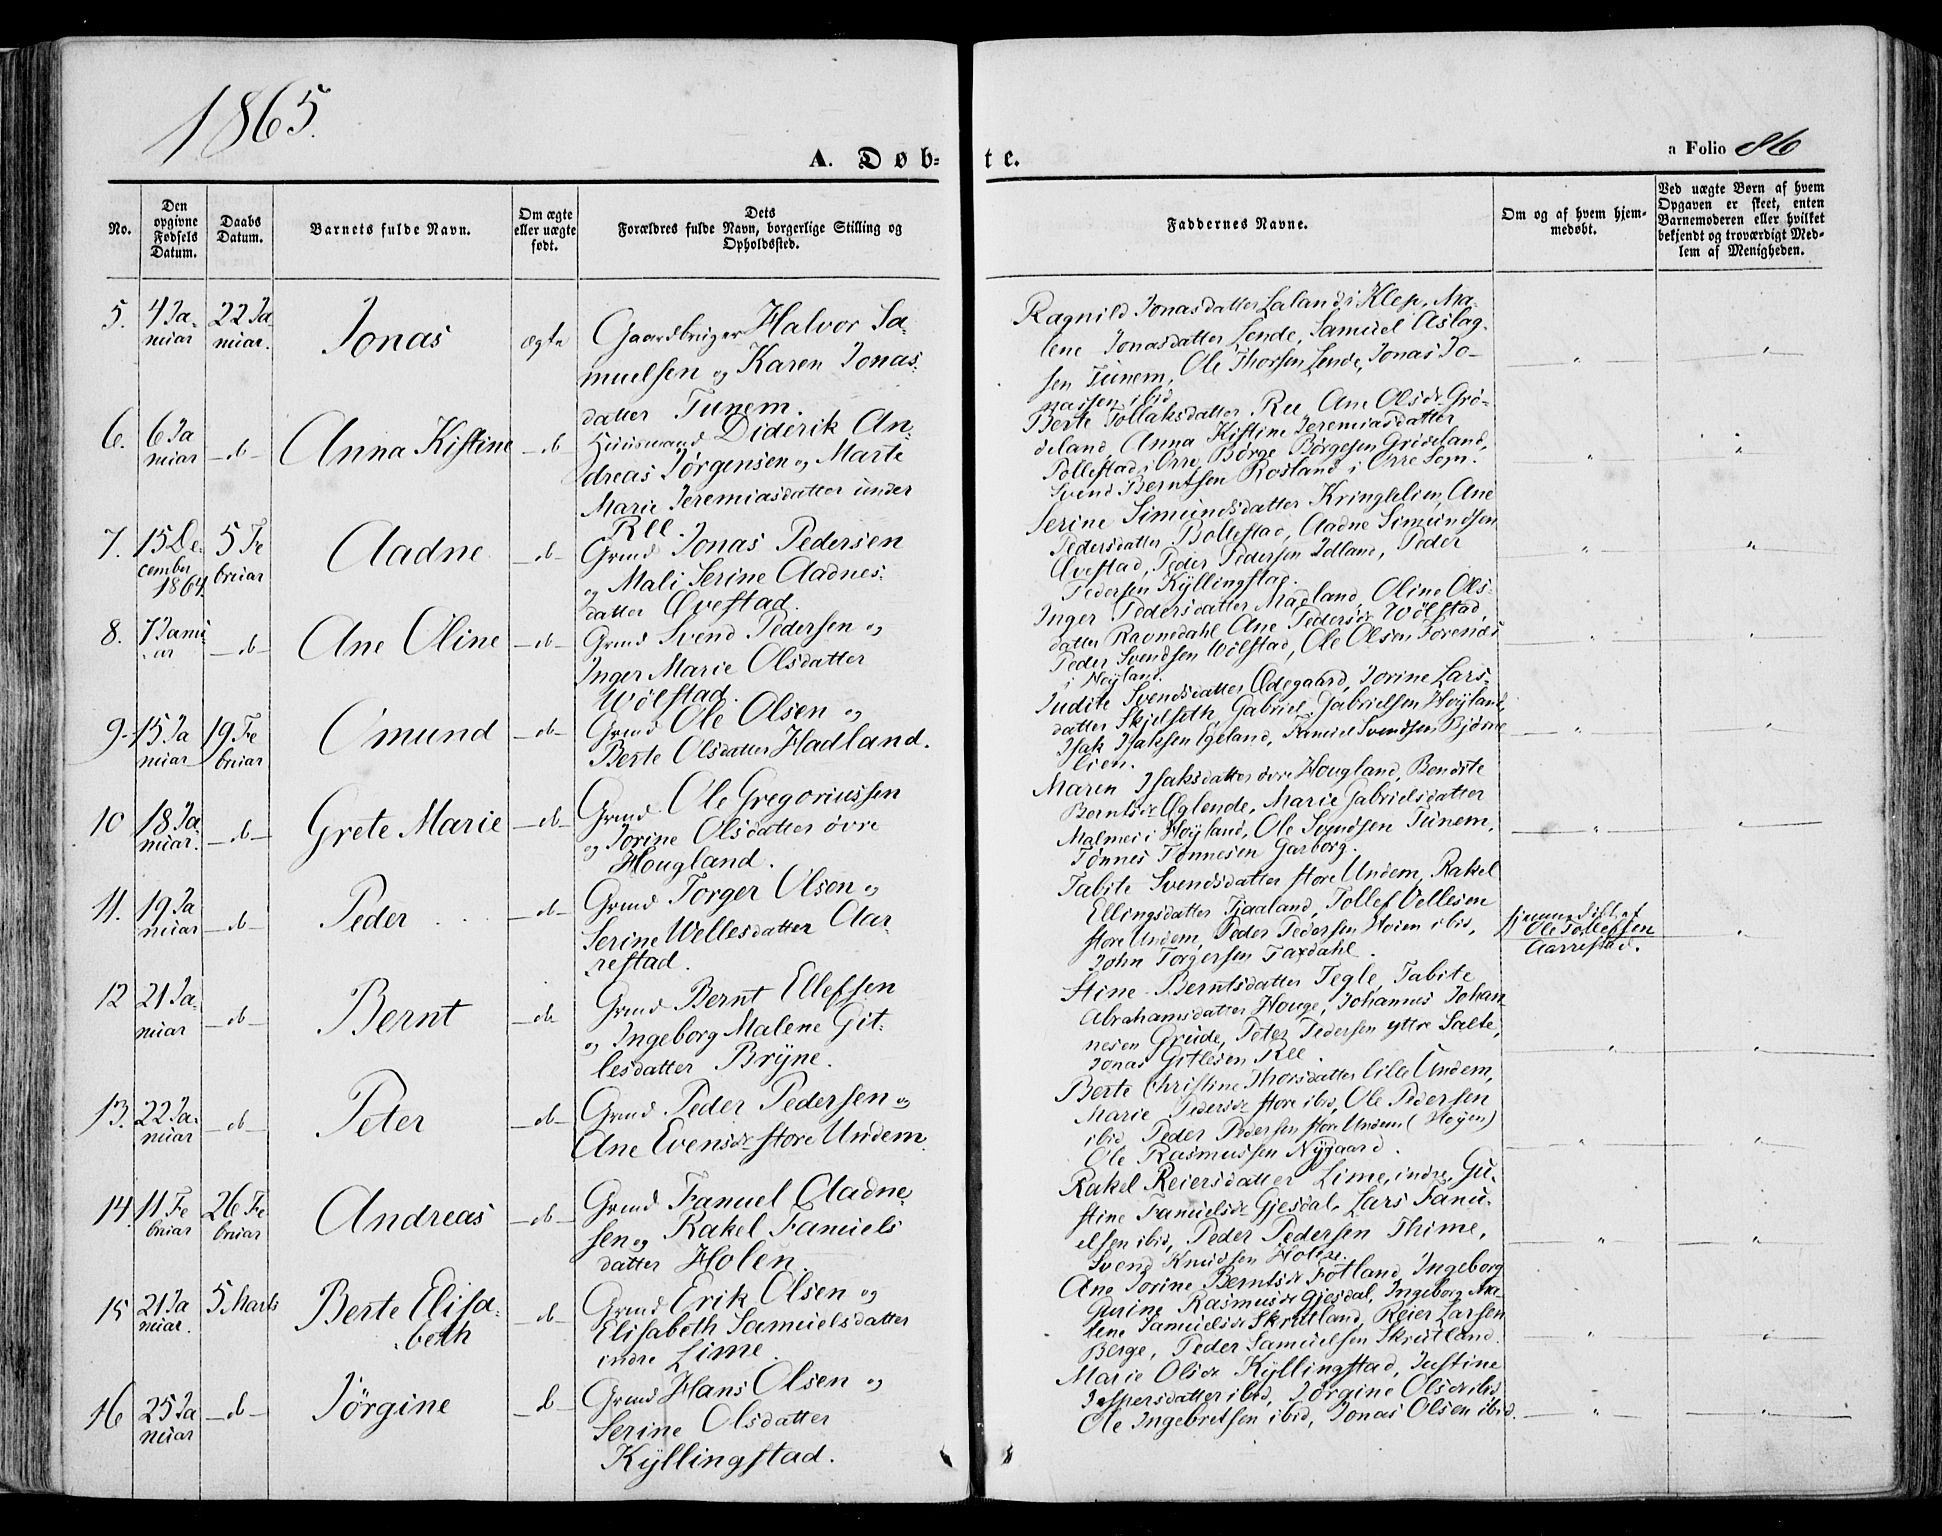 1865.
A. Døb-
te.
a Folio 86
No.
Den
opgivne
Fødsels
Datum.
Daabs
Datum.
Barnets fulde Navn.
Om ægte
eller uægte
født.
Dets
Forældres fulde Navn, borgerlige Stilling og
Opholdssted.
Faddernes Navne.
Om og af hvem hjem-
medøbt.
Ved uægte Børn af hvem
Opgaven er skeet, enten
Barnemoderen eller hvilket
bekjendt og troværdigt Med-
lem af Menigheden.
5.
4 Ja-
nuar
22 Ja
nuar.
Jonas
ægte
Gaardbruger Halvor Sa-
muelsen og Karen Jonas-
datter Tunem.
Ragnild Jonasdatter Laland i Klep, Ma-
lene Jonasdatter Lende, Samuel Aslag-
sen Tunem, Ole Thorsen Lende, Jonas Jo-
nassen ibid
6.
6 Ja
nuar
-d-
Anna Kistine
-d-
Huusmand Diderik An-
dreas Jørgensen og Marte
Marie Jeremiasdatter under
Ree.
Berte Tollaksdatter Ree Ane Olsdr Grø-
deland, Anna Kistine Jeremiasdatter
Pollestad i Orre, Børge Børgesen Grødeland,
Svend Berntsen Rosland i Orre Sogn.
7.
15 De-
cember
1864
5 Fe
bruar
Aadne
-d-
Grmd Jonas Pedersen
og Mali Serine Aadnes-
datter Øvestad.
Serine Simundsdatter Kringlelien, Ane
Pedersdatter Bollestad, Aadne Simundsen
Øvestad, Peder Pedersen Idland, Peder
Pedersen Kyllingstad.
8.
7 Janu
ar
-d-
Ane Oline
-d-
Grmd Svend Pedersen og
Inger Marie Olsdatter
Wølstad.
Inger Pedersdatter Madland, Oline Ols-
datter Ravnedahl Ane Pedersdr Wølstad,
Peder Svendsen Wølstad, Ole Olsen Foren
i Høyland.
9.
15 Ja
nuar
19 Fe
bruar
Omund
-d-
Grmd Ole Olsen og
Berte Olsdatter Hadland.
Judite Svendsdatter Ødegaard, Jorine Lars-
datter Skjelseth Gabriel Gabrielsen Høyland
Isak Isaksen Egeland, Famiel Svendsen Bjørne
lien.
10
18 Ja
nuar.
-d-
Grete Marie
-d-
Grmd Ole Gregoriussen
og Jorine Olsdatter øvre
Hougland.
Maren Isaksdatter øvre Hougland, Bendite
Berntsdr Øglende, Marie Gabrielsdatter
Malmei i Høyland, Ole Svendsen Tunem,
Tønnes Tønnesen Garborg.
11.
19 Ja
nuar
-d-
Peder
-d-
Grmd Torger Olsen og
Serine Wellesdatter Aar-
restad.
Tabite Svendsdatter store Undem, Rakel
Ellingsdatter Tjaaland, Tollef Vellesen
store Undem, Peder Pedersen Hoien ibid,
John Torgersen Taxdahl.
Ole Tollefsen
Aarrestad.
12
21 Ja-
nuar
-d-
Bernt
-d-
Grmd Bernt Ellefsen
og Ingeborg Malene Git-
lesdatter Bryne.
Stine Berntsdatter Tegle, Tabite
Abrahamsdatter Houge, Johannes Johan-
nesen Grude, Peter Pedersen yttre Salte,
Jonas Gitlesen Ree.
13.
22 Ja-
nuar
-d-
Peter
-d-
Grmd Peder Pedersen og
Ane Evensdr store Undem.
Berte Christine Thorsdatter lille Undem,
Marie Pedersdr store ibid, Ole Pedersen
ibid, Peder Pedersen store Undem (Høyen)
Ole Rasmussen Nygaard.
14.
11 Fe
bruar
26 Fe
bruar
Andreas
-d-
Grmd Fanuel Aadne-
sen og Rakel Famiels
datter Holen.
Rakel Reiersdatter Lime, indre, Gu-
stine Famielsdr Gjesdal, Lars Fanu-
elsen ibid, Peder Pedersen Thime,
Svend Knudsen Holen.
15
21 Ja
nuar.
5. Marts
Berte Elisa-
beth
-d-
Grmd Erik Olsen og
Elisabeth Samuelsdatter
indre Lime.
Ane Jorine Berntsdr Fotland, Ingeborg
Gurine Rasmusdr Gjesdal, Ingeborg Ma-
lene Samuelsdr Skrudland, Reier Larsen
Berge, Peder Samuelsen Skrudland.
16
25 Ja
nuar
-d-
Jørgine
-d-
Grmd Hans Olsen og
Serine Olsdatter
Kyllingstad.
Marie Olsdr Kyllingstad, Justine
Jespersdatter ibid, Jørgine Olsdr ibid,
Ole Ingebretsen ibid, Jonas Olsen ibid.